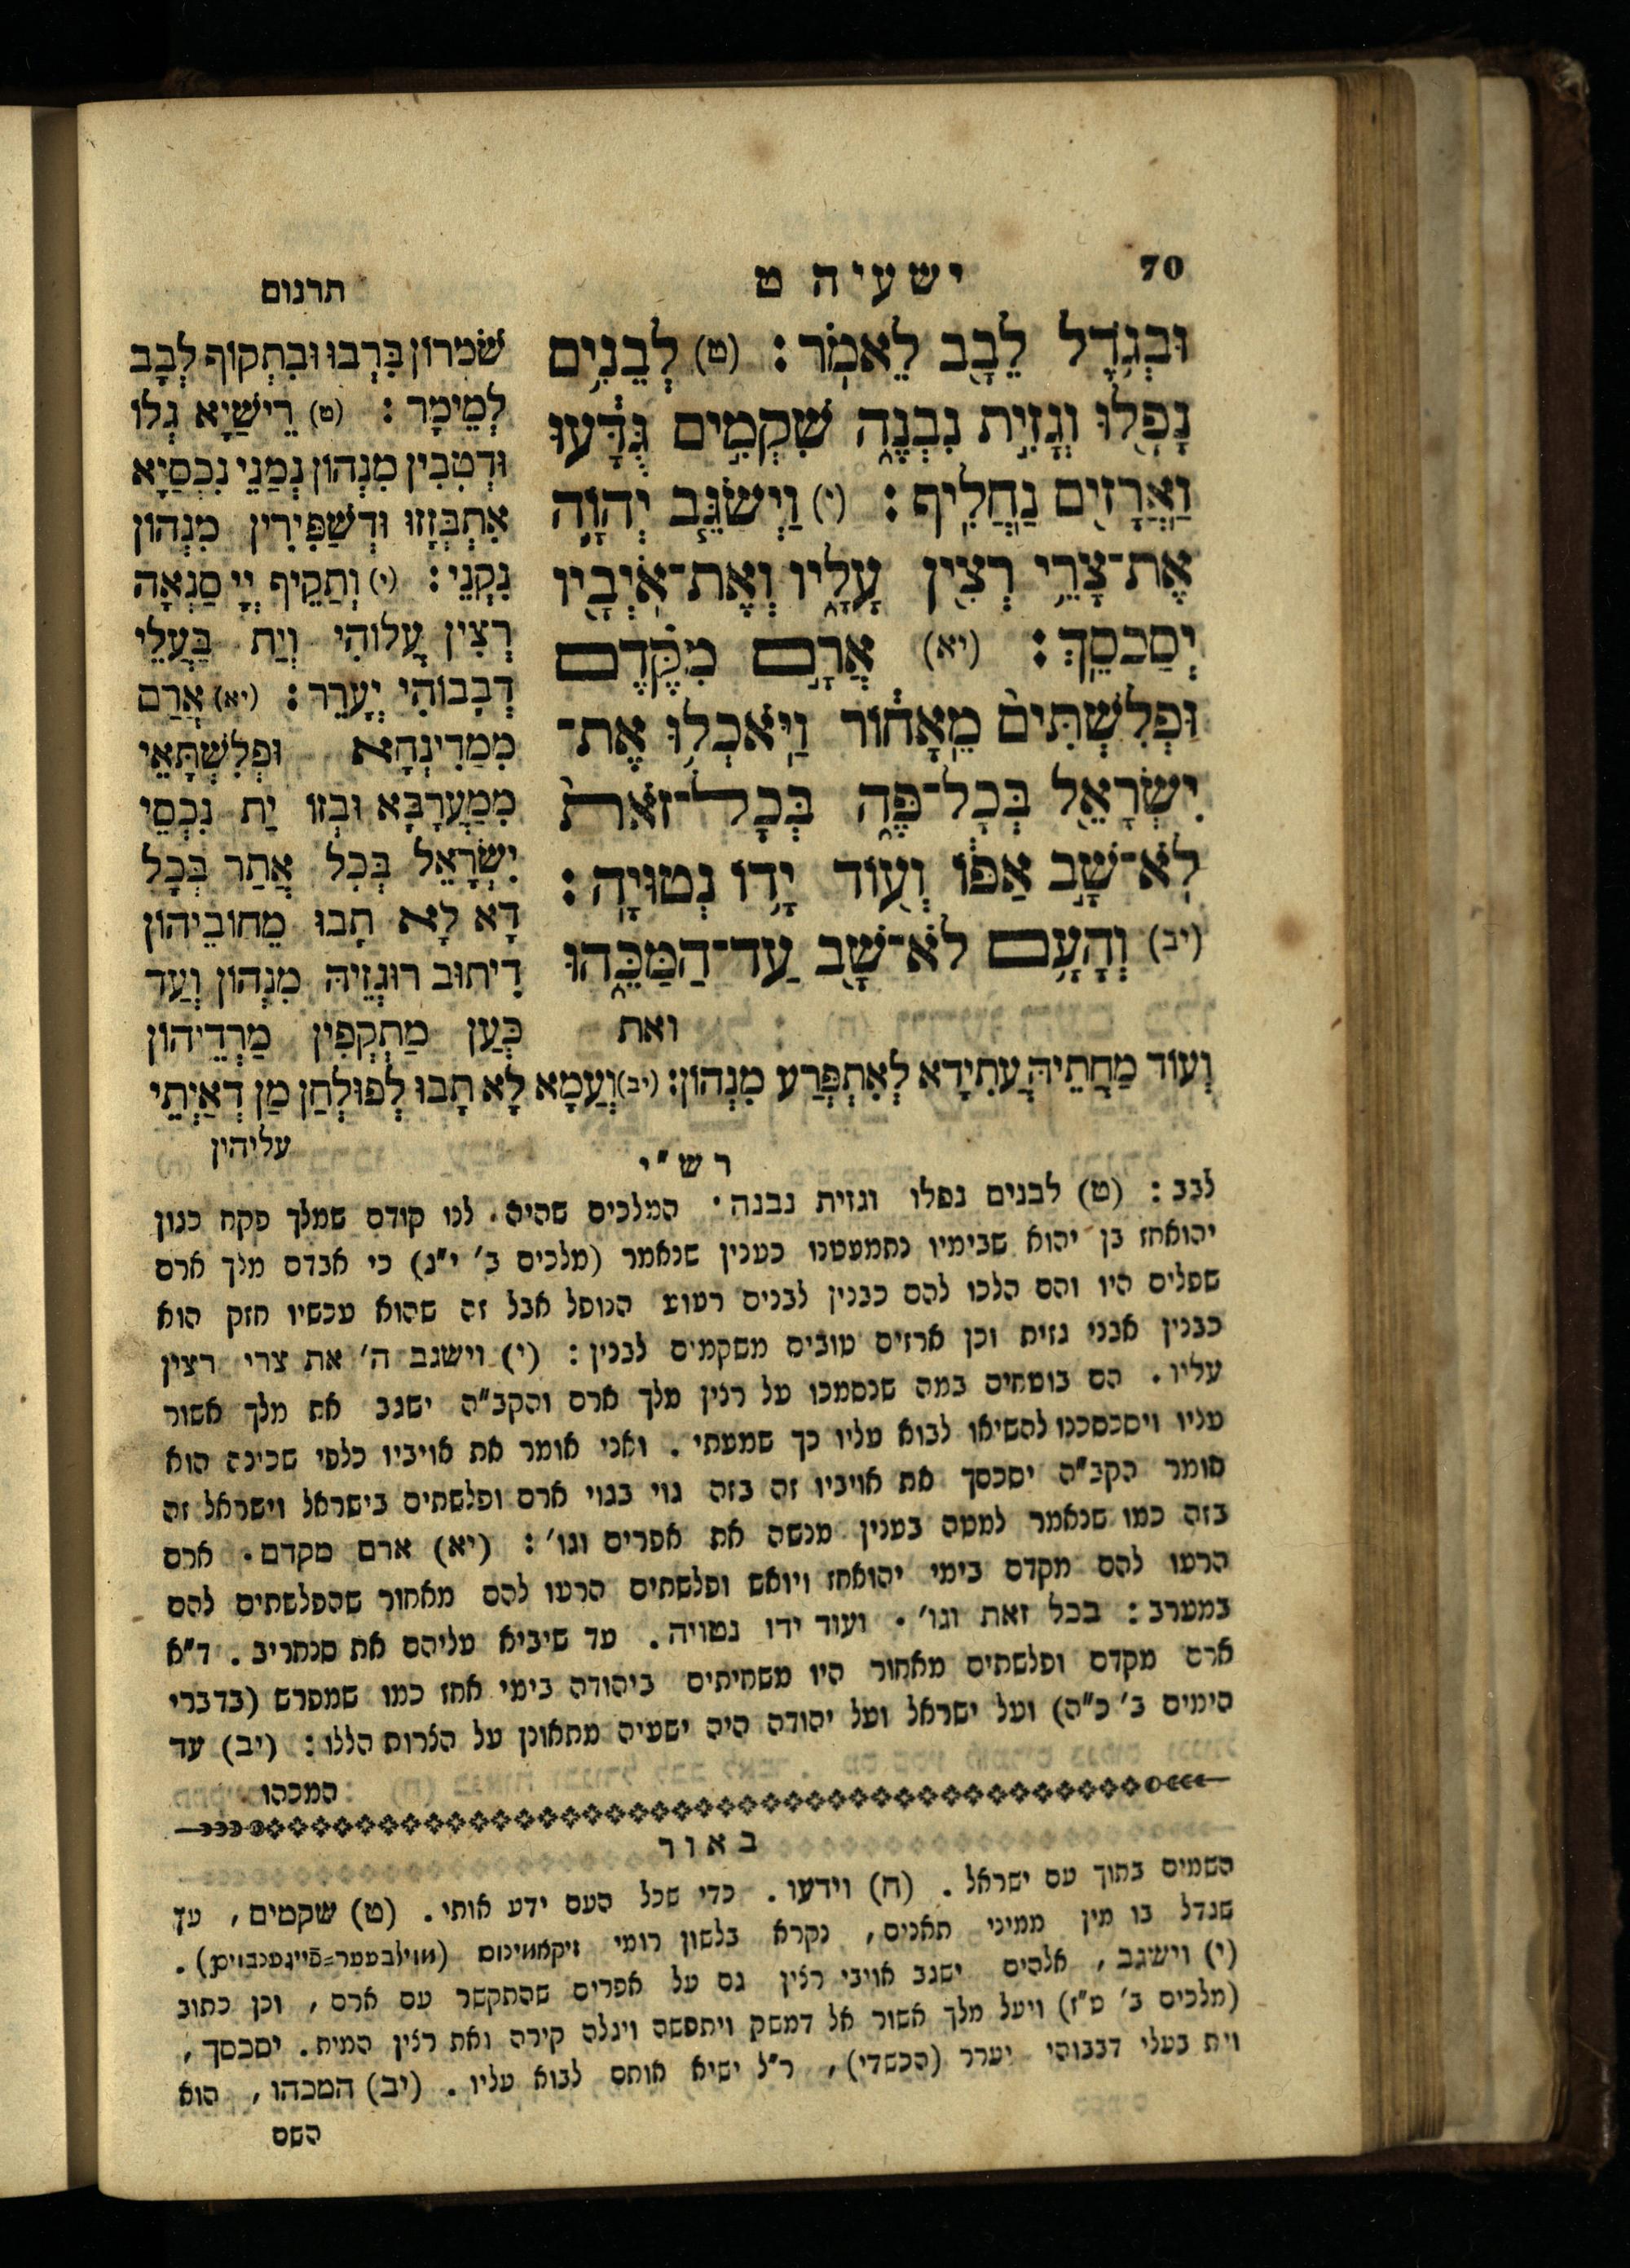 70
ישעיה ט
תרגום
וּבְגֹ֥דֶל לֵבָ֖ב לֵאמֹֽר׃ (ט) לְבֵנִ֥ים
נָפָ֖לוּ וְגָזִ֣ית נִבְנֶ֑ה שִׁקְמִ֣ים גֻּדָּ֔עוּ
וַֽאֲרָזִ֖ים נַֽחֲלִֽיף׃ (י) וַיְשַׂגֵּ֧ב יְהֹוָ֛ה
אֶת־צָרֵ֥י רְצִ֖ין עָלָ֑יו וְאֶת־אֹֽיְבָ֖יו
יְסַכְסֵֽךְ׃ (יא) אֲרָ֣ם מִקֶּ֗דֶם
וּפְלִשְׁתִּים֙ מֵֽאָח֔וֹר וַיֹּֽאכְל֥וּ אֶת־
יִשְׂרָאֵ֖ל בְּכָל־פֶּ֑ה בְּכָל־זֹאת֙
לֹֽא־שָׁ֣ב אַפּ֔וֹ וְע֖וֹד יָד֥וֹ נְטוּיָֽה׃
(יב) וְהָעָ֥ם לֹא־שָׁ֖ב עַד־הַמַּכֵּ֑הוּ
ואת
שֹׁמְרוֹן בִּרְבוּ וּבִתְקוֹף לְבָב
לְמֵימָר׃ (ט) רֵישַׁיָא גְלוֹ
וּדְטַבִין מִנְהוֹן נְמַנֵי נִכְסַיָא
אִתְבְּזָזוּ וּדְשַׁפִּירִין מִנְהוֹן
נִקְנֵי׃ (י) וְתַקֵיף יְיָ סַנְאָה
רְצִין עֲלוֹהִי וְיַת בַּעֲלֵי
דְבָבוֹהִי יְעָרֵר׃ (יא) אֲרַם
מִמַדִינְחָא וּפְלִשְׁתָּאֵי
מִמַעֲרָבָא וּבְזוֹ יַת נִכְסֵי
יִשְׂרָאֵל בְּכָל אֲתַר בְּכָל
דָא לָא תָבוּ מֵחוֹבֵיהוֹן
דִיתוּב רוּגְזֵיהּ מִנְהוֹן וְעַד
כְּעַן מַתְקְפִין מַרְדֵיהוֹן
וְעוֹד מַחֲתֵיהּ עֲתִידָא לְאִתְפְּרַע מִנְהוֹן׃ (יב) וְעַמָא לָא תָבוּ לְפוּלְחַן מַן דְאַיְתֵי
עליהון
רש״י
לבב׃ (ט) לבנים נפלו וגזית נבנה· המלכים שהיו לנו קודם שמלך פקח כגון
יהואחז בן יהוא שבימיו נתמעטנו כענין שנאמר (מלכים ב׳ י״ג) כי אבדם מלך ארם
שפלים היו והם הלכו להם כבנין לבנים רעוע הנופל אבל זה שהוא עכשיו חזק הוא
כבנין אבני גזית וכן ארזים טובים משקמים לבנין׃ (י) וישגב ה׳ את צרי רצין
עליו. הם בוטחים במה שנסמכו על רצין מלך ארם והקב״ה ישגב את מלך אשור
עליו ויסכסכנו להשיאו לבוא עליו כך שמעתי. ואני אומר את אויביו כלפי שכינה הוא
אומר הקב״ה יסכסך את אויביו זה בזה גוי בגוי ארם ופלשתים בישראל וישראל זה
בזה כמו שנאמר למטה בענין מנשה את אפרים וגו׳׃ (יא) ארם מקדם· ארם
הרעו להם מקדם בימי יהואחז ויואש ופלשתים הרעו להם מאחור שהפלשתים להם
במערב׃ בכל זאת וגו׳· ועוד ידו נטויה. עד שיביא עליהם את סנחריב. ד״א
ארם מקדם ופלשתים מאחור היו משחיתים ביהודה בימי אחז כמו שמפרש (בדברי
הימים ב׳ כ״ה) ועל ישראל ועל יהודה היה ישעיה מתאונן על הצרות הללו׃ (יב) עד
המכהו
באור
השמים בתוך עם ישראל. (ח) וידעו. כדי שכל העם ידע אותי. (ט) שקמים, עץ
שגדל בו מין ממיני תאנים, נקרא בלשון רומי זיקאמינוס (מוילבעער=פייגענבוים).
(י) וישגב, אלהים ישגב אויבי רצין גם על אפרים שהתקשר עם ארם, וכן כתוב
(מלכים ב׳ ט״ז) ויעל מלך אשור אל דמשק ויתפשה ויגלה קירה ואת רצין המית. יסכסך,
וית בעלי דבבוהי יערר (הכשדי), ר״ל ישיא אותם לבוא עליו. (יב) המכהו, הוא
השם